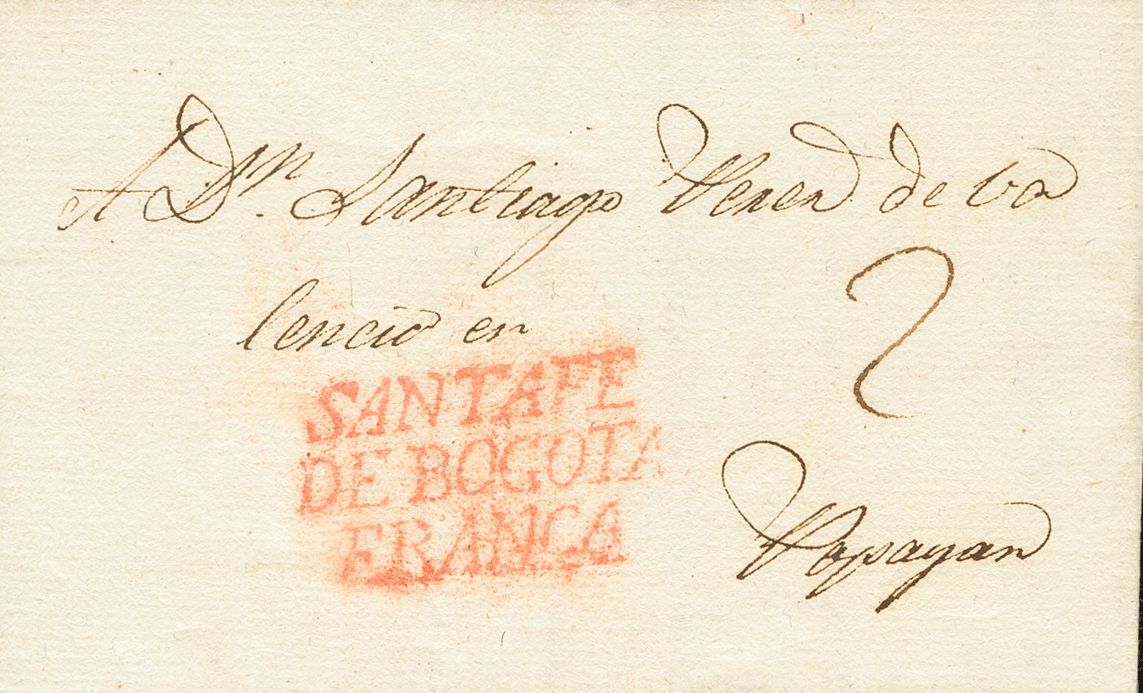 A Dⁿ. Santiago Perez de Va
lencia en
2
SANTAFE
DE BOGOTA
FRANCA
Popayan